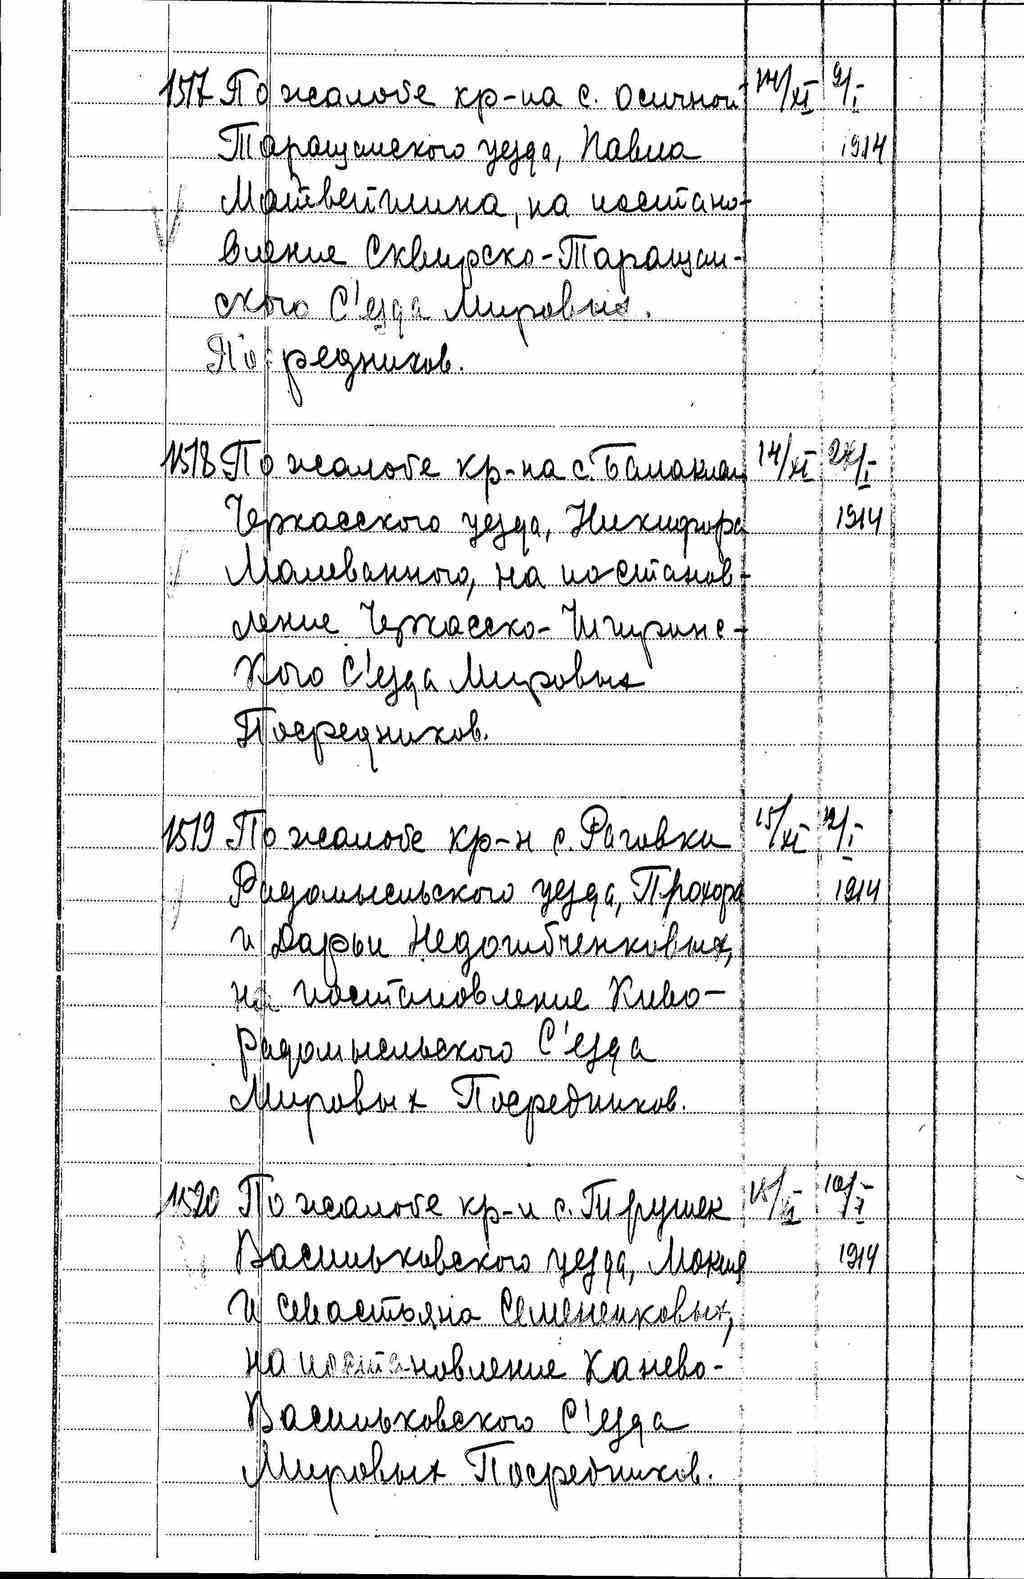 1517 По жалобе кр-на с. Осичной 14/XI 9/I
Таращанского уезда, Павла 1914
Матвейчина, на постано-
вление Сквирско-Таращан-
ского С'езда Мировых
Посредников.
1518 По жалобе кр-на с. Балаклеи 14/XI 24/I
Черкасского уезда, Никифора 1914
Малеванного, на постанов-
ление Черкасско-Чигиринс-
кого С'езда Мировых
Посредников.
1519 По жалобе кр-н с. Раговки 15/XI 12/I
Радомысльского уезда, Прохора 1914
и Дарьи Недошбченковых,
на постановление Киево-
Радомысльского С'езда
Мировых Посредников.
1520 По жалобе кр-н с. Трушек 15/XI 10/I
Васильковского уезда, Мокия 1914
и Севастьяна Семененковых,
на постановление Канево-
Васильковского С'езда
Мировых Посредников.